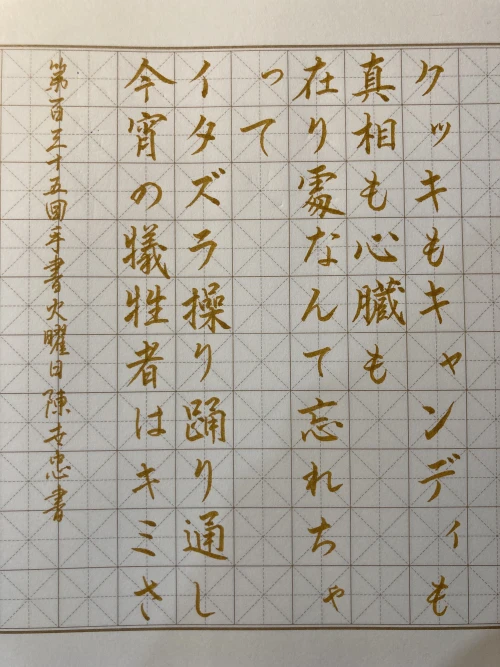 クッキもキャンディも
真相も心臓も
在り處なんて忘れちゃ
って
イタズラ操り踊り通し
今宵の犠牲者はキミさ
第一百三十五回手書火曜日陳孝忠書